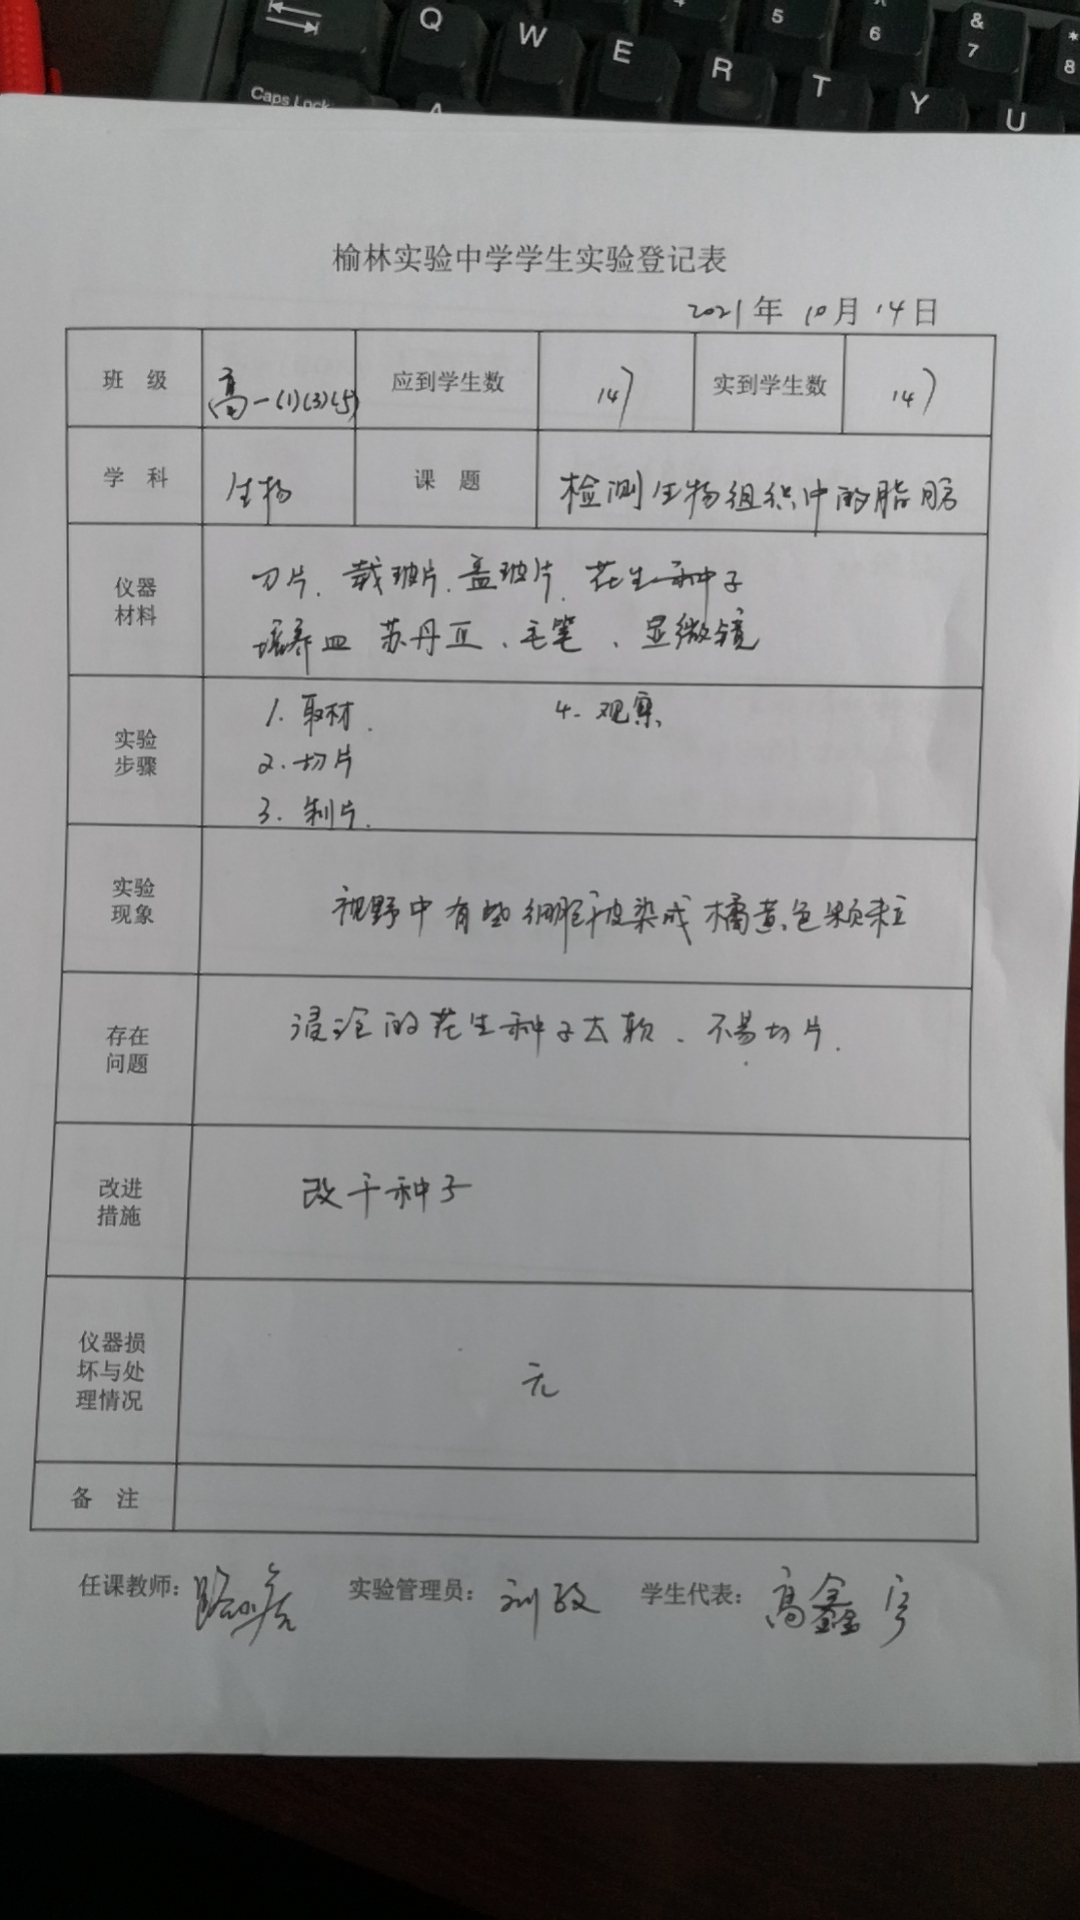 Q W E R T Y U
5 ^ 6 & 7 * 8
Caps Lock A
榆林实验中学学生实验登记表
2021年 10月 14日
班 级 高一(1)(3)(5) 应到学生数 147 实到学生数 147
学 科 生物 课 题 检测生物组织中的脂肪
仪器材料 刀片、载玻片、盖玻片、花生种子
培养皿 苏丹Ⅲ、毛笔、显微镜
实验步骤 1. 取材. 4. 观察
2. 切片
3. 制片.
实验现象 视野中有些细胞被染成橘黄色颗粒
存在问题 浸泡的花生种子太软、不易切片.
改进措施 改干种子
仪器损坏与处理情况 无
备 注
任课教师: 实验管理员: 刘 学生代表: 高鑫宇